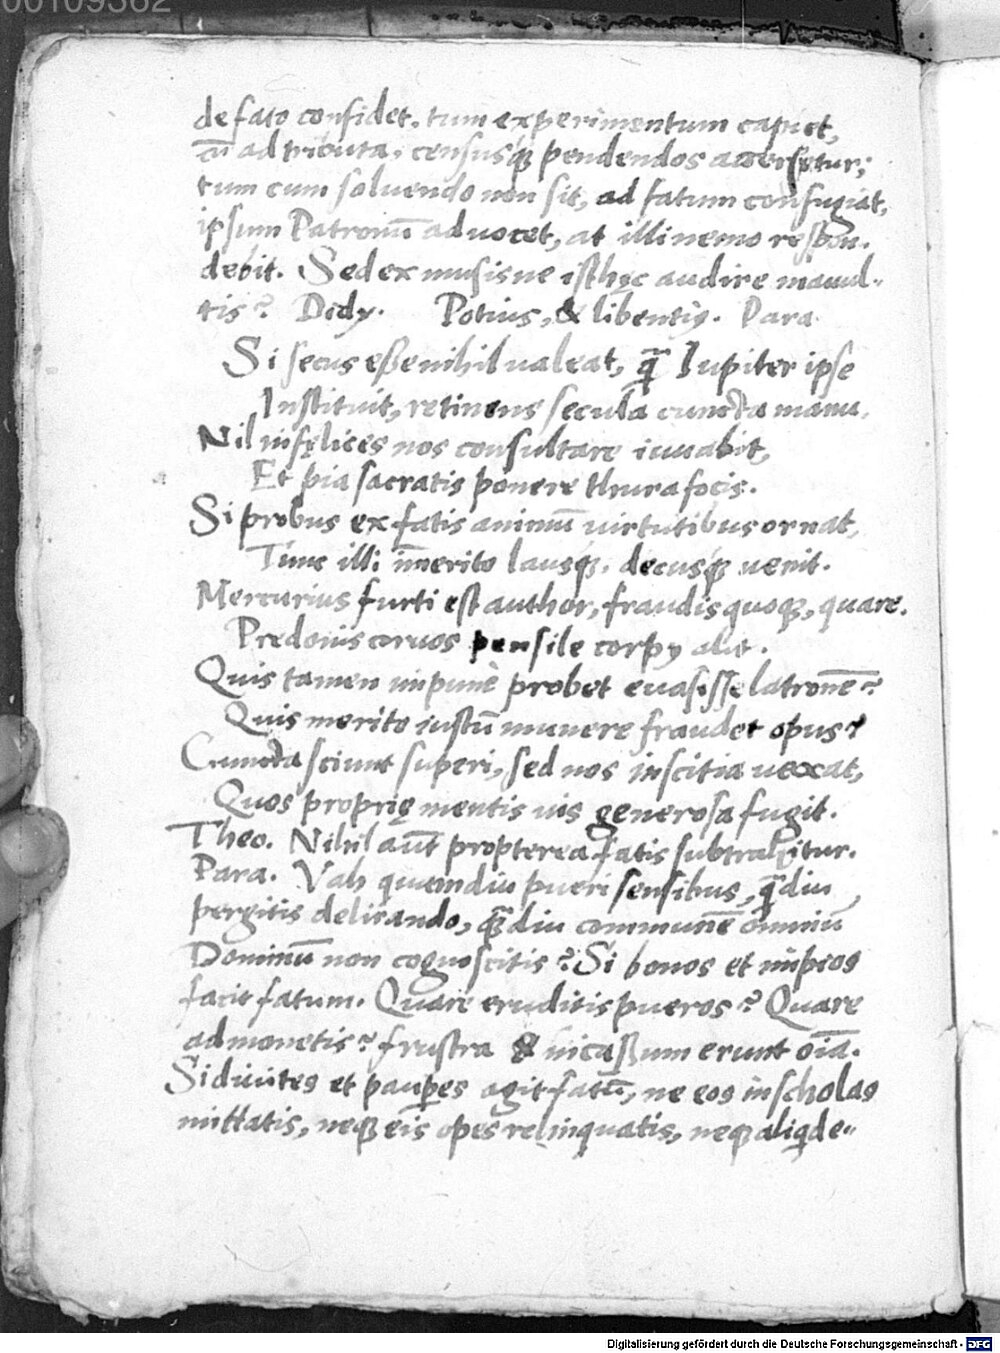 00109362
de fato confidet. tum experimentum capiet,
cū ad tributa, censusq́ pendendos accersetur;
tum cum soluendo non sit, ad fatum confugiat,
ipsum Patronū aduocet, at illi nemo respon.
debit. Sed ex musis ne isthęc audire mauul-
tis? Didy. Potius, & libentiꝰ. Para
Si secus esse nihil ualeat, q̄ Iupiter ipse
Instituit, retinens secula cuncta manu,
Nil infęlices nos consultare iuuabit,
Et pia sacratis ponere thura focis.
Si probus ex fatis animū uirtutibus ornat,
Tunc illi īmerito lausq́, decusq́ uenit.
Mercurius furti est author, fraudis quoq, quare.
Predonis coruos pensile corpꝰ alit.
Quis tamen impunè probet euasisse latronē?
Quis merito iustū munere fraudet opus?
Cuncta sciunt superi, sed nos inscitia uexat,
Quos proprię mentis uis generosa fugit.
Theo. Nihil aūt propterea fatis subtrahitur.
Para. Vah quamdiu pueri sensibus, q̄diu
pergitis delirando, q̄diu communē omniū
Dominū non cognoscitis? Si bonos et impios
facit fatum. Quare eruditis pueros? Quare
admonetis? frustra & incassum erunt oīa.
Si diuites et paup̱es agit fatū, ne eos in scholas
mittatis, neq́ eis opes relinquatis, neq́ aliqd de-
Digitalisierung gefördert durch die Deutsche Forschungsgemeinschaft - DFG